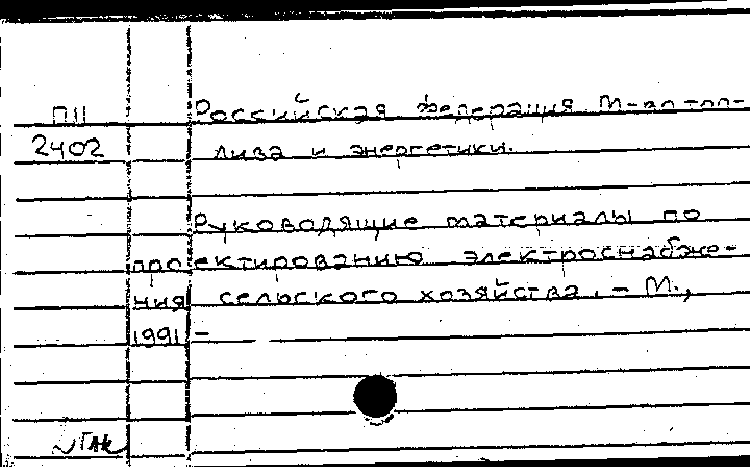 П11 Российская Федерация М-во топ-
2402 лива и энергетики.
Руководящие материалы по
проектированию электроснабже-
ния сельского хозяйства. - М.,
1991 -